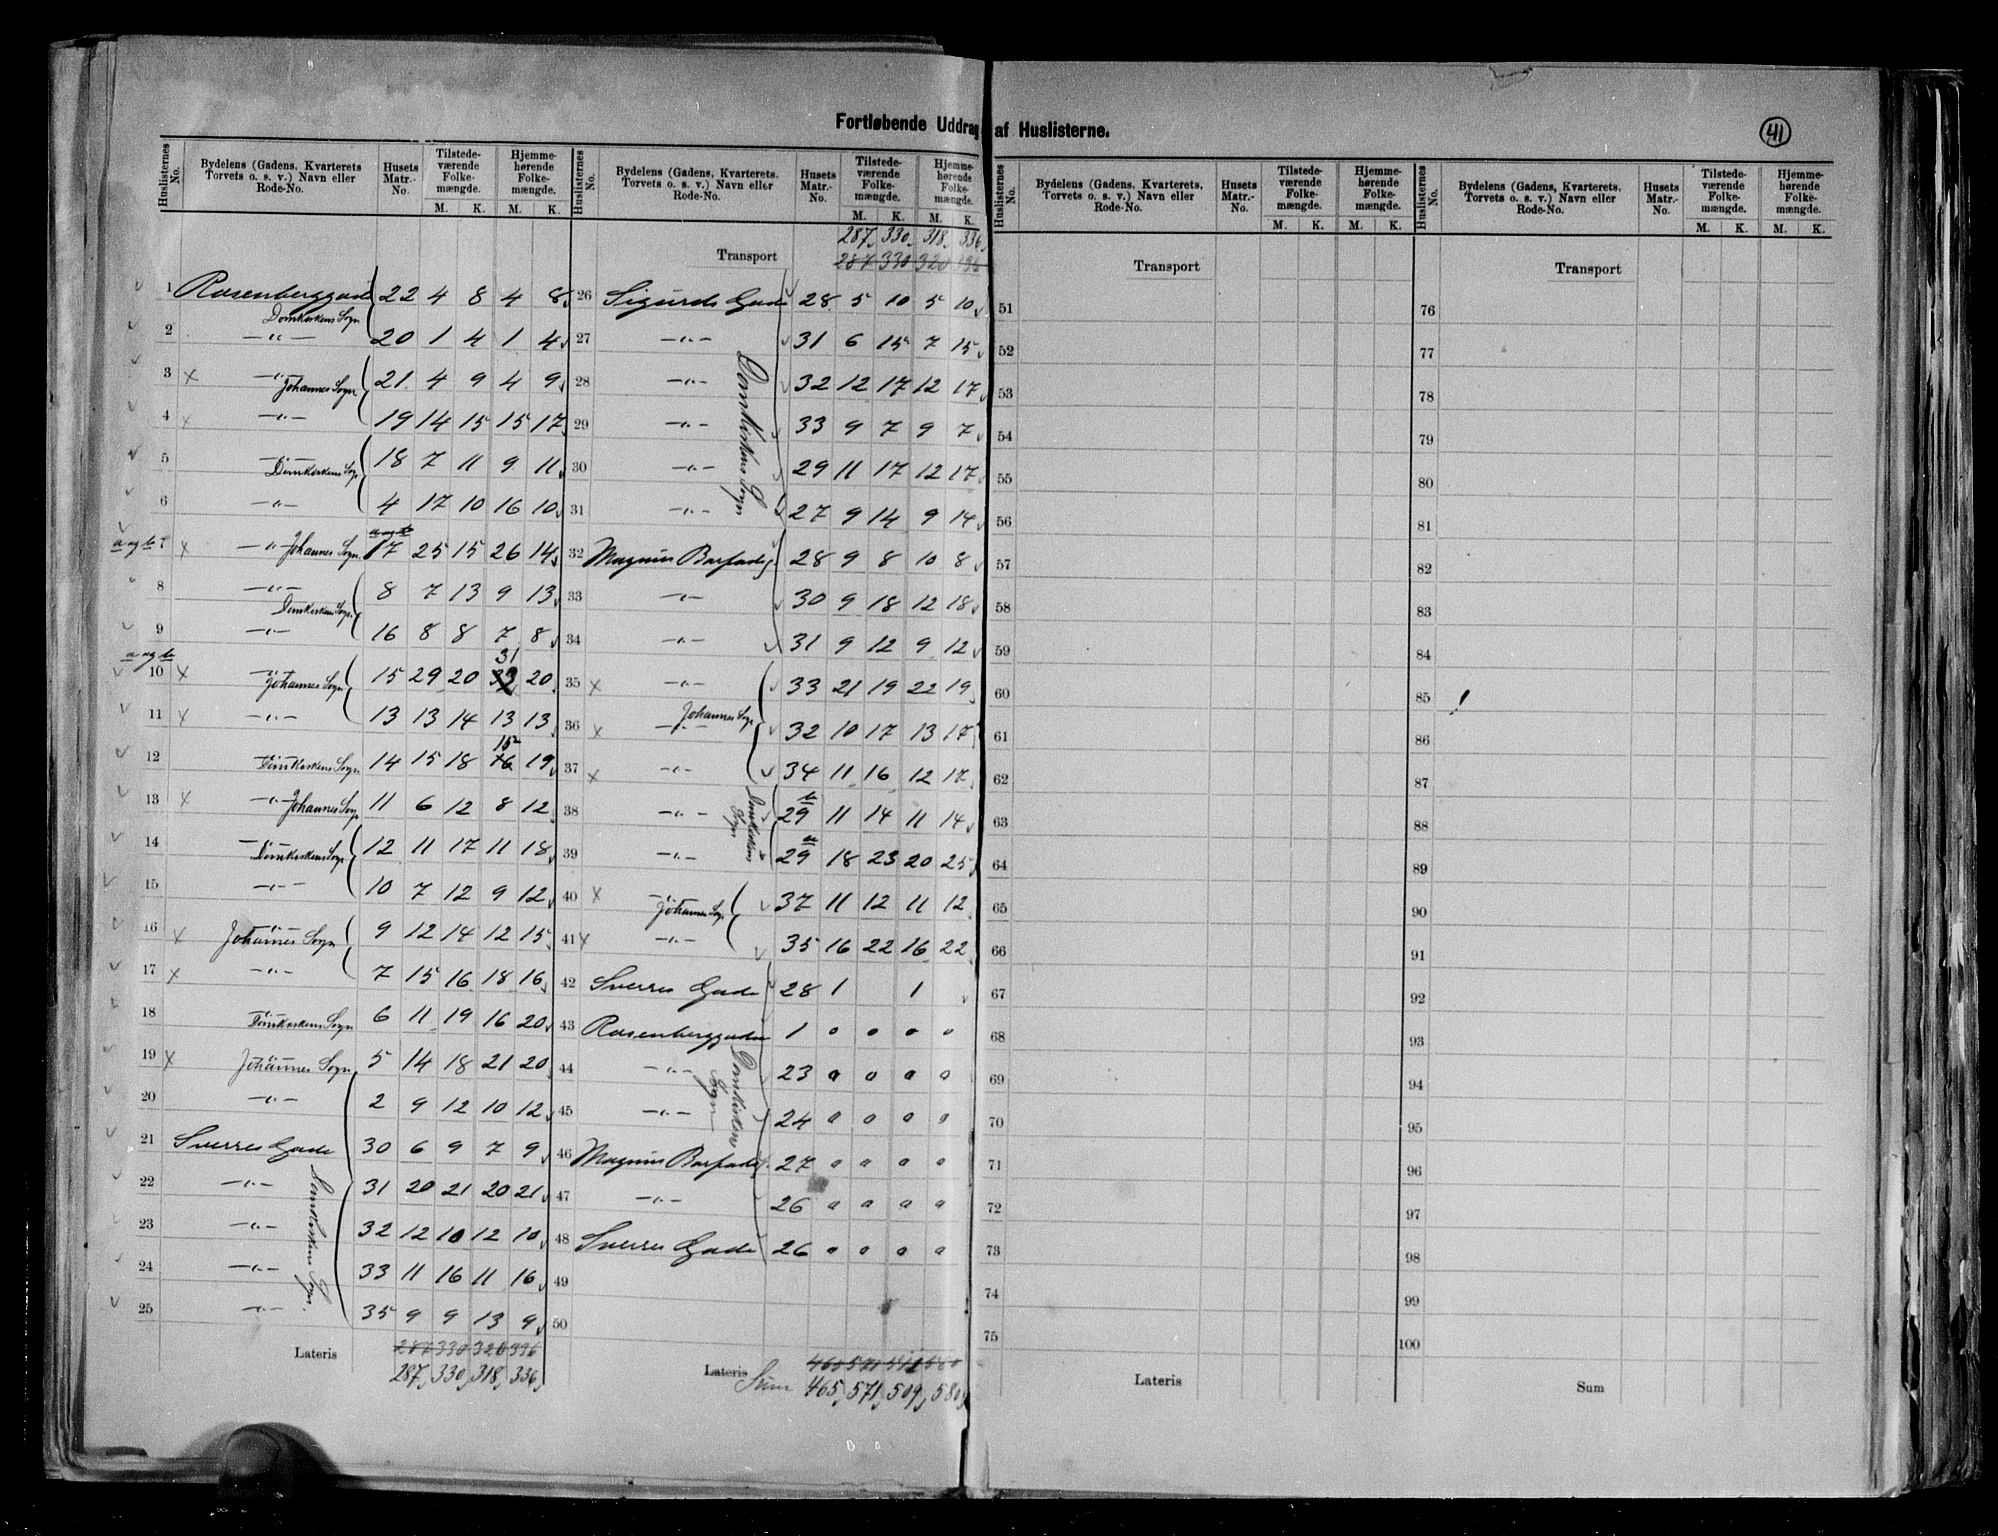 Fortløbende Uddrag af Huslisterne.
41
Huslisternes No. | Bydelens (Gadens, Kvarterets Torvets o. s. v.) Navn eller Rode-No. | Husets Matr.-No. | Tilstedeværende Folkemængde. M. K. | Hjemmehørende Folkemængde. M. K.
1 Rosenberggade 22 4 8 4 8
Domkirkens Sogn
2 —"— 20 1 4 1 4
3 x —"— Johannes Sogn 21 4 9 4 9
4 x —"— 19 14 15 15 17
5 —"— Domkirkens Sogn 18 7 11 9 11
6 —"— 4 17 10 16 10
a og b 7 x —"— Johannes Sogn a og b 17 25 15 26 14
8 —"— 8 7 13 9 13
Domkirkens Sogn
9 —"— 16 8 8 7 8
a og b
10 x —"— Johannes Sogn 15 29 20 33 31 20
11 x —"— 13 13 14 13 13
12 —"— Domkirkens Sogn 14 15 18 16 15 19
13 x —"— Johannes Sogn 11 6 12 8 12
14 —"— Domkirkens Sogn 12 11 17 11 18
15 —"— 10 7 12 9 12
16 x —"— Johannes Sogn 9 12 14 12 15
17 x —"— 7 15 16 18 16
18 —"— Domkirkens Sogn 6 11 19 16 20
19 x —"— Johannes Sogn 5 14 18 21 20
20 —"— 2 9 12 10 12
21 Sverres Gade 30 6 9 7 9
22 —"— 31 20 21 20 21
Domkirkens Sogn.
23 —"— 32 12 10 12 10
24 —"— 33 11 16 11 16
25 —"— 35 9 9 13 9
Lateris 287 330 320 336
287, 330, 318, 336,
Huslisternes No. | Bydelens (Gadens, Kvarterets, Torvets o. s. v.) Navn eller Rode-No. | Husets Matr.-No. | Tilstedeværende Folkemængde. M. K. | Hjemmehørende Folkemængde. M. K.
287, 330, 318, 336,
Transport 287 330 320 336
26 Sigurds Gade 28 5 10 5 10
27 —"— 31 6 15 7 15
28 —"— 32 12 17 12 17
Domkirkens Sogn
29 —"— 33 9 7 9 7
30 —"— 29 11 17 12 17
31 —"— 27 9 14 9 14
32 Magnus Barfodsg. 28 9 8 10 8
33 —"— 30 9 18 12 18
34 —"— 31 9 12 9 12
35 x —"— 33 21 19 22 19
Johannes Sogn
36 x —"— 32 10 17 13 17
37 x —"— 34 11 16 12 17
38 —"— 29 b 11 14 11 14
Domkirkens Sogn
39 —"— 29 a 18 23 20 25
40 x —"— Johannes Sogn 37 11 12 11 12
41 x —"— 35 16 22 16 22
42 Sverres Gade 28 1 1
43 Rosenberggaden 1 0 0 0 0
44 —"— 23 0 0 0 0
Domkirkens Sogn
45 —"— 24 0 0 0 0
46 Magnus Barfodsg. 27 0 0 0 0
47 —"— 26 0 0 0 0
48 Sverres Gade 26 0 0 0 0
49
50
Lateris
Sum 465, 571, 509, 580,
Huslisternes No. | Bydelens (Gadens, Kvarterets, Torvets o. s. v.) Navn eller Rode-No. | Husets Matr.-No. | Tilstedeværende Folkemængde. M. K. | Hjemmehørende Folkemængde. M. K.
Transport
51
52
53
54
55
56
57
58
59
60
61
62
63
64
65
66
67
68
69
70
71
72
73
74
75
Lateris
Huslisternes No. | Bydelens (Gadens, Kvarterets, Torvets o. s. v.) Navn eller Rode-No. | Husets Matr.-No. | Tilstedeværende Folkemængde. M. K. | Hjemmehørende Folkemængde. M. K.
Transport
76
77
78
79
80
81
82
83
84
85
86
87
88
89
90
91
92
93
94
95
96
97
98
99
100
Sum